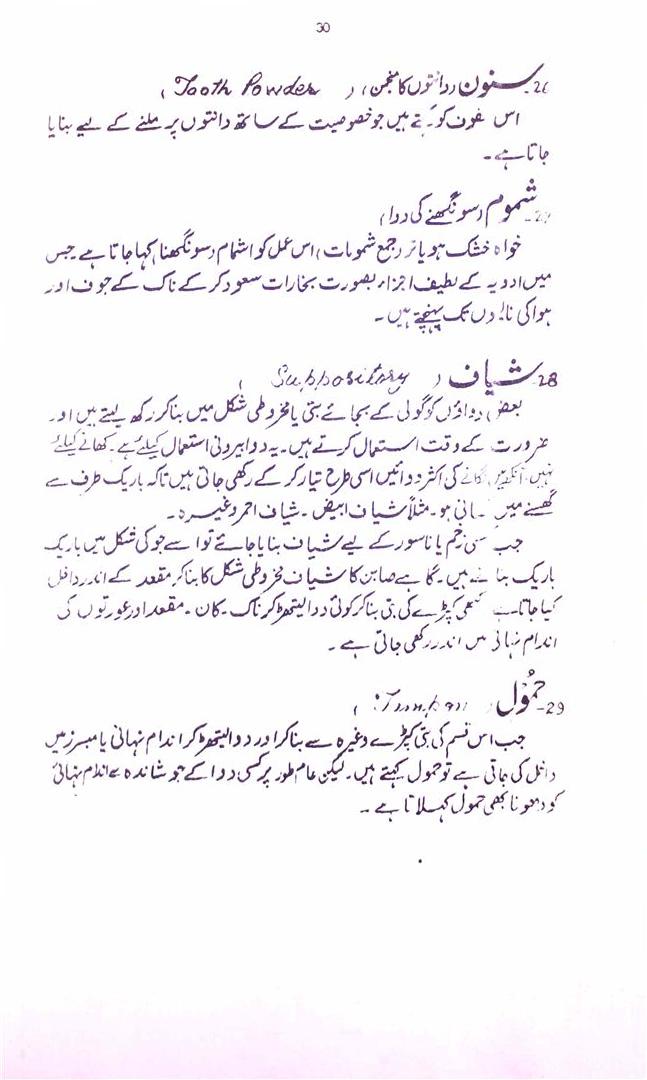 30
26۔ سنون (دانتوں کا منجن) (Tooth Powder)
اس سفوف کو کہتے ہیں جو خصوصیت کے ساتھ دانتوں پر ملنے کے لیے بنایا
جاتا ہے۔
27۔ شموم (سونگھنے کی دوا)
خواہ خشک ہو یا تر (جمع شمومات) اس عمل کو اشمام (سونگھنا) کہا جاتا ہے جس
میں ادویہ کے لطیف اجزاء بصورت بخارات سعود کر کے ناک کے جوف اور
ہوا کی نالیوں تک پہنچتے ہیں۔
28۔ شیاف (Suppository)
بعض دواؤں کو گولی کے بجائے بتی یا مخروطی شکل میں بنا کر رکھ لیتے ہیں اور
ضرورت کے وقت استعمال کرتے ہیں۔ یہ دوا بیرونی استعمال کیلئے ہے۔ کھانے کیلئے
نہیں، آنکھ میں لگانے کی اکثر دوائیں اسی طرح تیار کر کے رکھی جاتی ہیں تاکہ باریک طرف سے
گھسنے میں آسانی ہو۔ مثلاً شیاف ابیض۔ شیاف احمر وغیرہ۔
جب کسی زخم یا ناسور کے لیے شیاف بنایا جائے تو اسے جو کی شکل میں باریک
باریک بناتے ہیں۔ گاہے صابن کا شیاف مخروطی شکل کا بنا کر مقعد کے اندر داخل
کیا جاتا ہے کبھی کپڑے کی بتی بنا کر کوئی دوا لیتھڑ کر ناک۔ کان۔ مقعد اور عورتوں کی
اندام نہانی میں اندر رکھی جاتی ہے۔
29۔ حمُول (Tampon)
جب اس قسم کی بتی کپڑے وغیرہ سے بنا کر اور دوا لیتھڑ کر اندام نہانی یا مبرز میں
داخل کی جاتی ہے تو حمول کہتے ہیں۔ لیکن عام طور پر کسی دوا کے جوشاندہ سے اندام نہانی
کو دھونا بھی حمول کہلاتا ہے۔